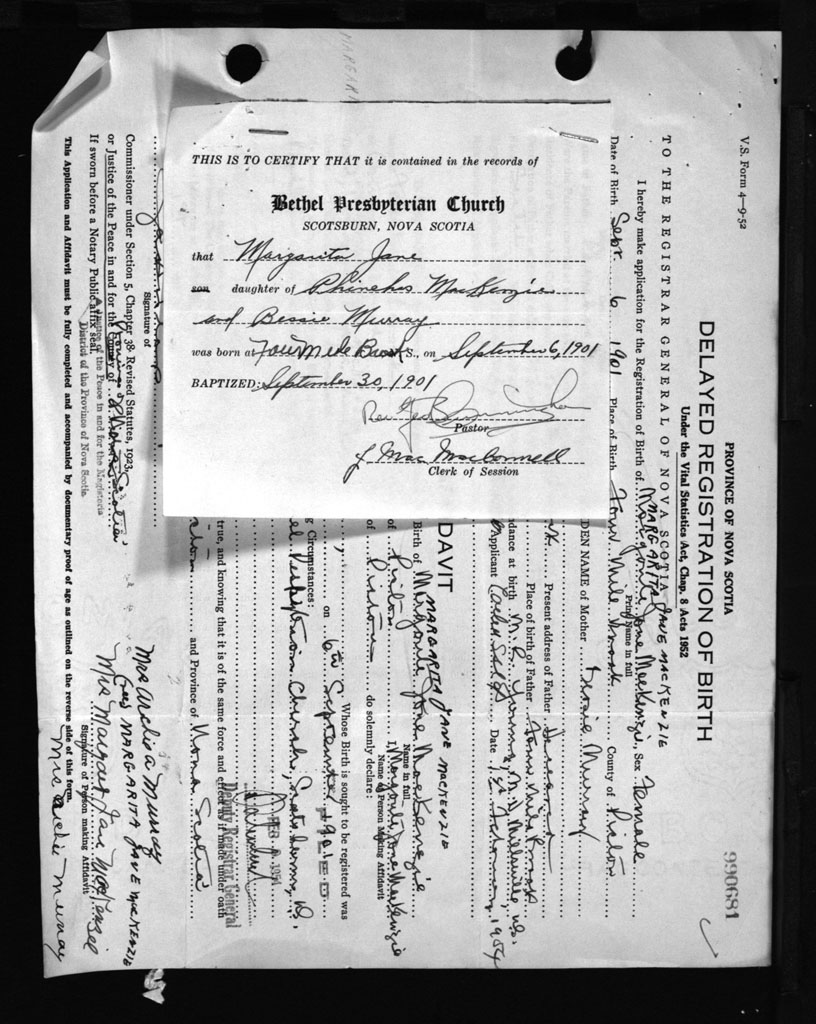 THIS IS TO CERTIFY THAT it is contained in the records of
Bethel Presbyterian Church
SCOTSBURN, NOVA SCOTIA
that Margarita Jane
son daughter of Phinehas MacKenzie
and Bessie Murray
was born at Four Mile Brook S., on September 6, 1901
BAPTIZED: September 30, 1901
Rev
Pastor
J Mac MacConnell
Clerk of Session
V.S. Form 4—9-52
PROVINCE OF NOVA SCOTIA
DELAYED REGISTRATION OF BIRTH
Under the Vital Statistics Act, Chap. 8 Acts 1952
990681
TO THE REGISTRAR GENERAL OF NOVA SCOTIA
MARGARITA JANE MACKENZIE
I hereby make application for the Registration of Birth of Marjorie Jane MacKenzie, Sex Female
Print Name in full
Date of Birth Sept. 6 1901 Place of Birth Four Mile Brook County of Pictou
DEN NAME of Mother Bessie Murray
Present address of Father Deceased
Place of birth of Father Four Mile Brook
dance at birth M.R. Young, M.D. Millville N.S.
Applicant Date 1954
DAVIT
MARGARITA JANE MACKENZIE
Birth of Marjorie Jane MacKenzie
Name in full
of Pictou I, Marjorie Jane MacKenzie
Name of Person Making Affidavit
of Pictou do solemnly declare:
Whose Birth is sought to be registered was
on 6th September 1901
FILED
g Circumstances:
el Presbyterian Church, Scotsburn, N.S.
FEB
Deputy Registrar General
true, and knowing that it is of the same force and effect as if made under oath
and Province of Nova Scotia
Signature of
Commissioner under Section 5, Chapter 38 Revised Statutes, 1923,
or Justice of the Peace in and for the County of
If sworn before a Notary Public affix seal.
A Justice of the Peace in and for the Magisteria
District of the Province of Nova Scotia
Mrs Archie Murray
(nee) MARGARITA JANE MACKENZIE
Mrs Margaret Jane MacKenzie
Signature of Person making Affidavit
Mrs Archie Murray
This Application and Affidavit must be fully completed and accompanied by documentary proof of age as outlined on the reverse side of this form.